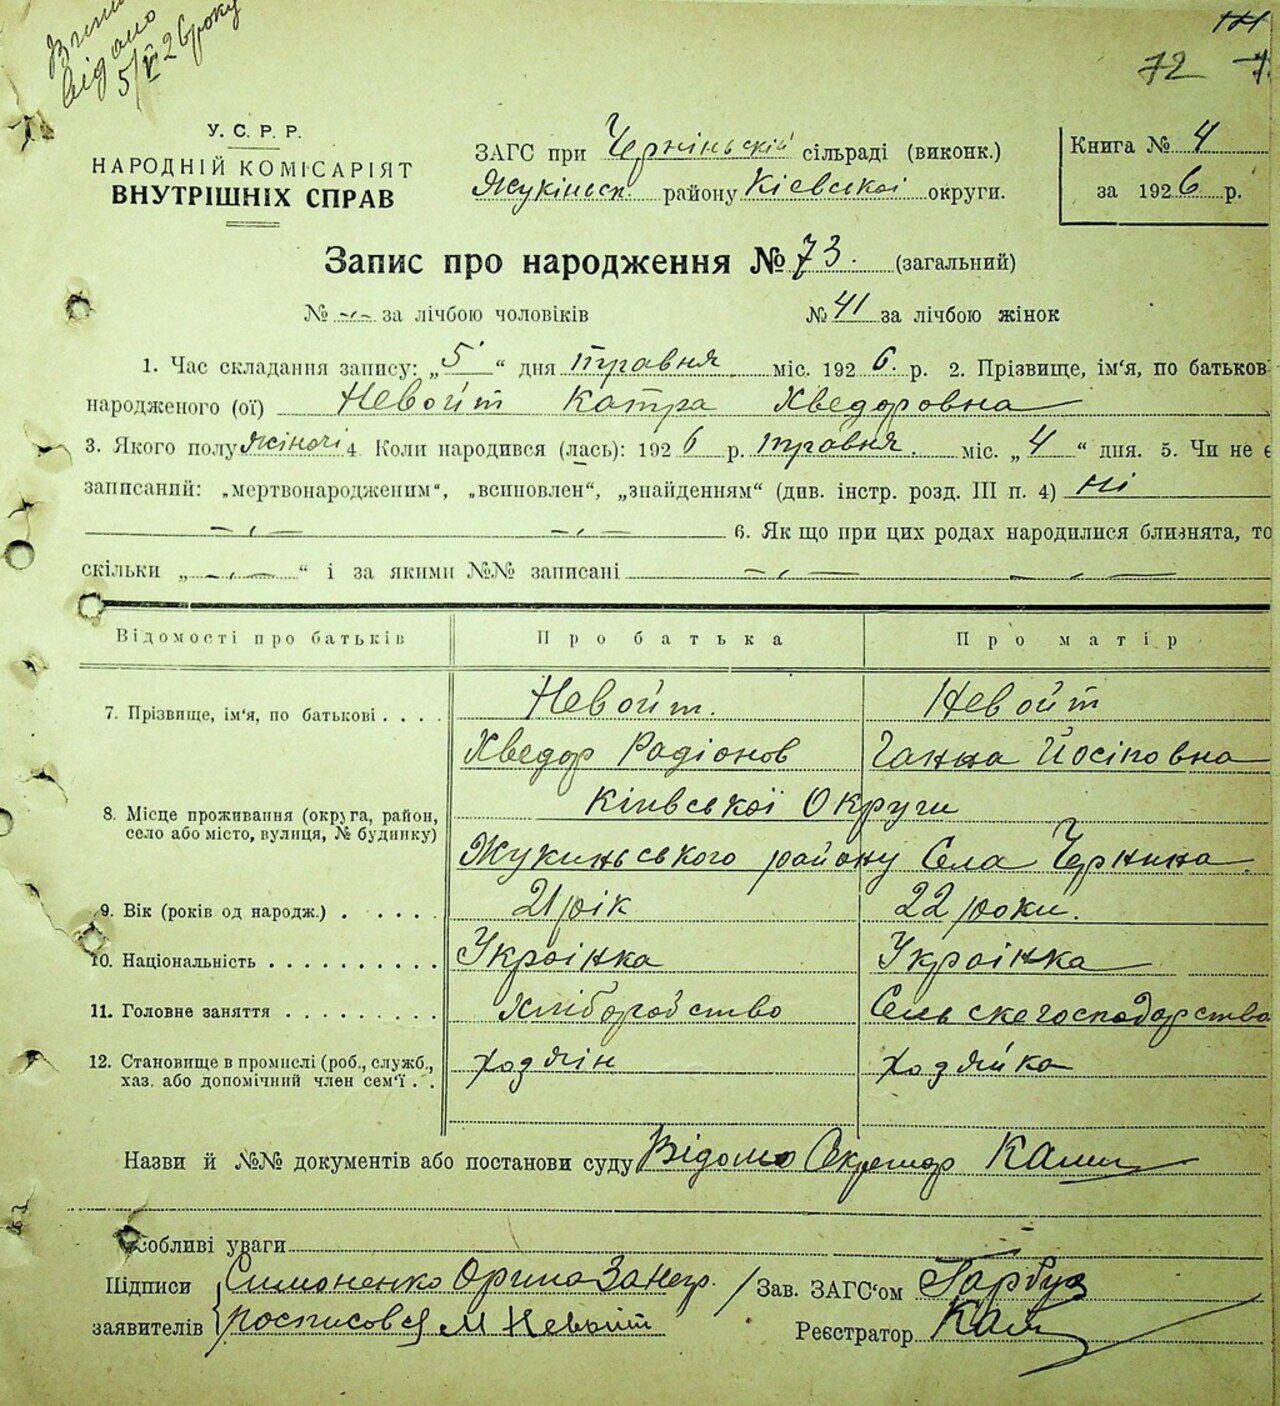 відано
5/V 26 року
72
У. С. Р. Р.
НАРОДНІЙ КОМІСАРІЯТ
ВНУТРІШНІХ СПРАВ
ЗАГС при Черніньскій сільраді (виконк.)
Жукінськ. району Кіевскоі округи.
Книга № 4
за 1926 р.
Запис про народження № 73. (загальний)
№ -„- за лічбою чоловіків
№ 41 за лічбою жінок
1. Час складання запису: „5“ дня травня міс. 1926. р. 2. Прізвище, ім'я, по батьков
народженого (ої) Невойт Катра Хведоровна
3. Якого полу жіночі 4. Коли народився (лась): 1926 р. травня. міс. „4“ дня. 5. Чи не є
записаний: „мертвонародженим“, „всиновлен“, „знайденням“ (див. інстр. розд. III п. 4) ні
-„- -„- 6. Як що при цих родах народилися близнята, то
скільки „-„-“ і за якими №№ записані -„- -„-
Відомості про батьків Про батька Про матір
7. Прізвище, ім'я, по батькові . . . . Невойт. Невойт
Хведор Радіонов Ганна Йосіповна
8. Місце проживання (округа, район, село або місто, вулиця, № будинку) Київської Округи
Жукиньського району Села Чернина.
9. Вік (років од народж.) . . . . . 21 рік 22 роки.
10. Національність . . . . . . . . . . Украінка Украінка
11. Головне заняття . . . . . . . . . Хліборобство Сельскегосподарство
12. Становище в промислі (роб., служб., хаз. або допомічний член сем'ї . . Ходяін Ходяйка
Назви й №№ документів або постанови суду Відомо Секретар
Особливі уваги
Підписи Симоненко Орина За негр. / Зав. ЗАГС'ом Гарбуз
заявителів росписовся М Невойт Реєстратор